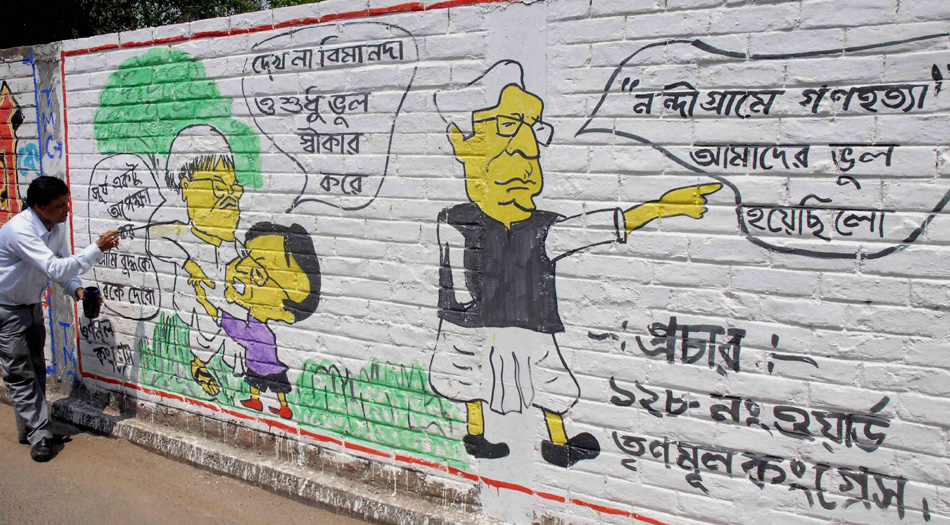 TMC
দেখ না বিমানদা
ও শুধু ভুল
স্বীকার
করে
সূর্য একটু
অপেক্ষা
কর
আমি বুদ্ধকে
বকে দেবো
তৃণমূল
কংগ্রেস
TM
"নন্দীগ্রামে গণহত্যা"
আমাদের ভুল
হয়েছিলো
-ঃ প্রচার ঃ-
১২৮ নং ওয়ার্ড
তৃণমূল কংগ্রেস।